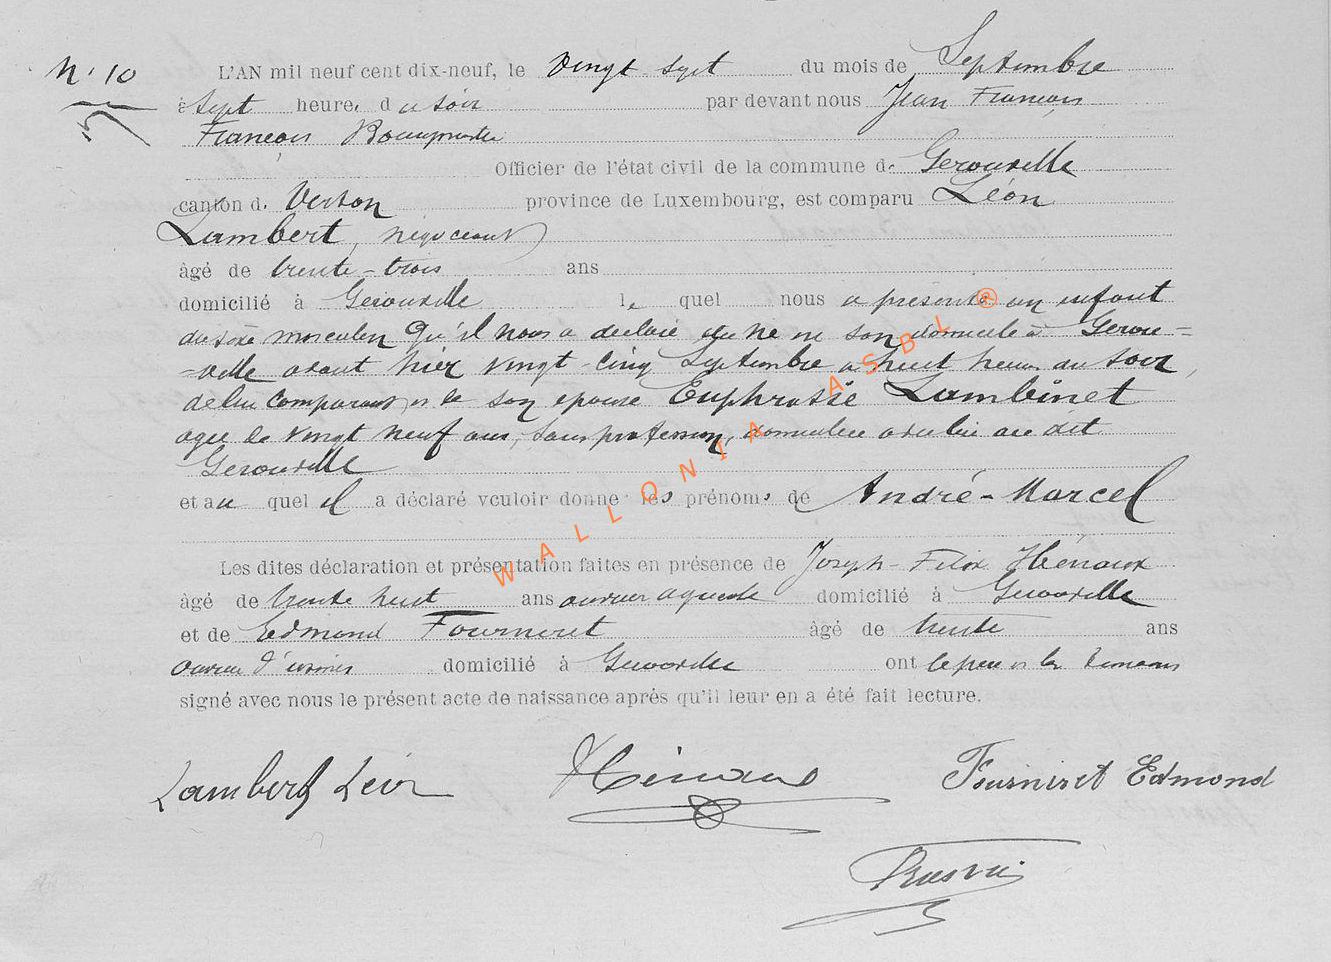 N° 10
L'AN mil neuf cent dix-neuf, le vingt sept du mois de Septembre
à sept heures du soir par devant nous Jean François
François
Officier de l'état civil de la commune de Gérouville
canton de Virton province de Luxembourg, est comparu Léon
Lambert, négociant
âgé de trente-trois ans
domicilié à Gérouville lequel nous a présenté un enfant
du sexe masculin qu'il nous a déclaré être né en son domicile à Gérou-
-ville avant hier vingt-cinq Septembre à huit heures du soir,
de lui comparant et de son épouse Euphrasie Lambinet
agée de vingt neuf ans, sans profession, domiciliée avec lui au dit
Gérouville
et auquel il a déclaré vouloir donner les prénoms de André-Marcel
Les dites déclaration et présentation faites en présence de Joseph-Félix Hénaux
âgé de trente huit ans ouvrier agricole domicilié à Gérouville
et de Edmond Fourniret âgé de trente ans
ouvrier d'usines domicilié à Gérouville ont le père et les témoins
signé avec nous le présent acte de naissance après qu'il leur en a été fait lecture.
Lambert Léon Hénaux Fourniret Edmond
WALLONIA ASBL ®